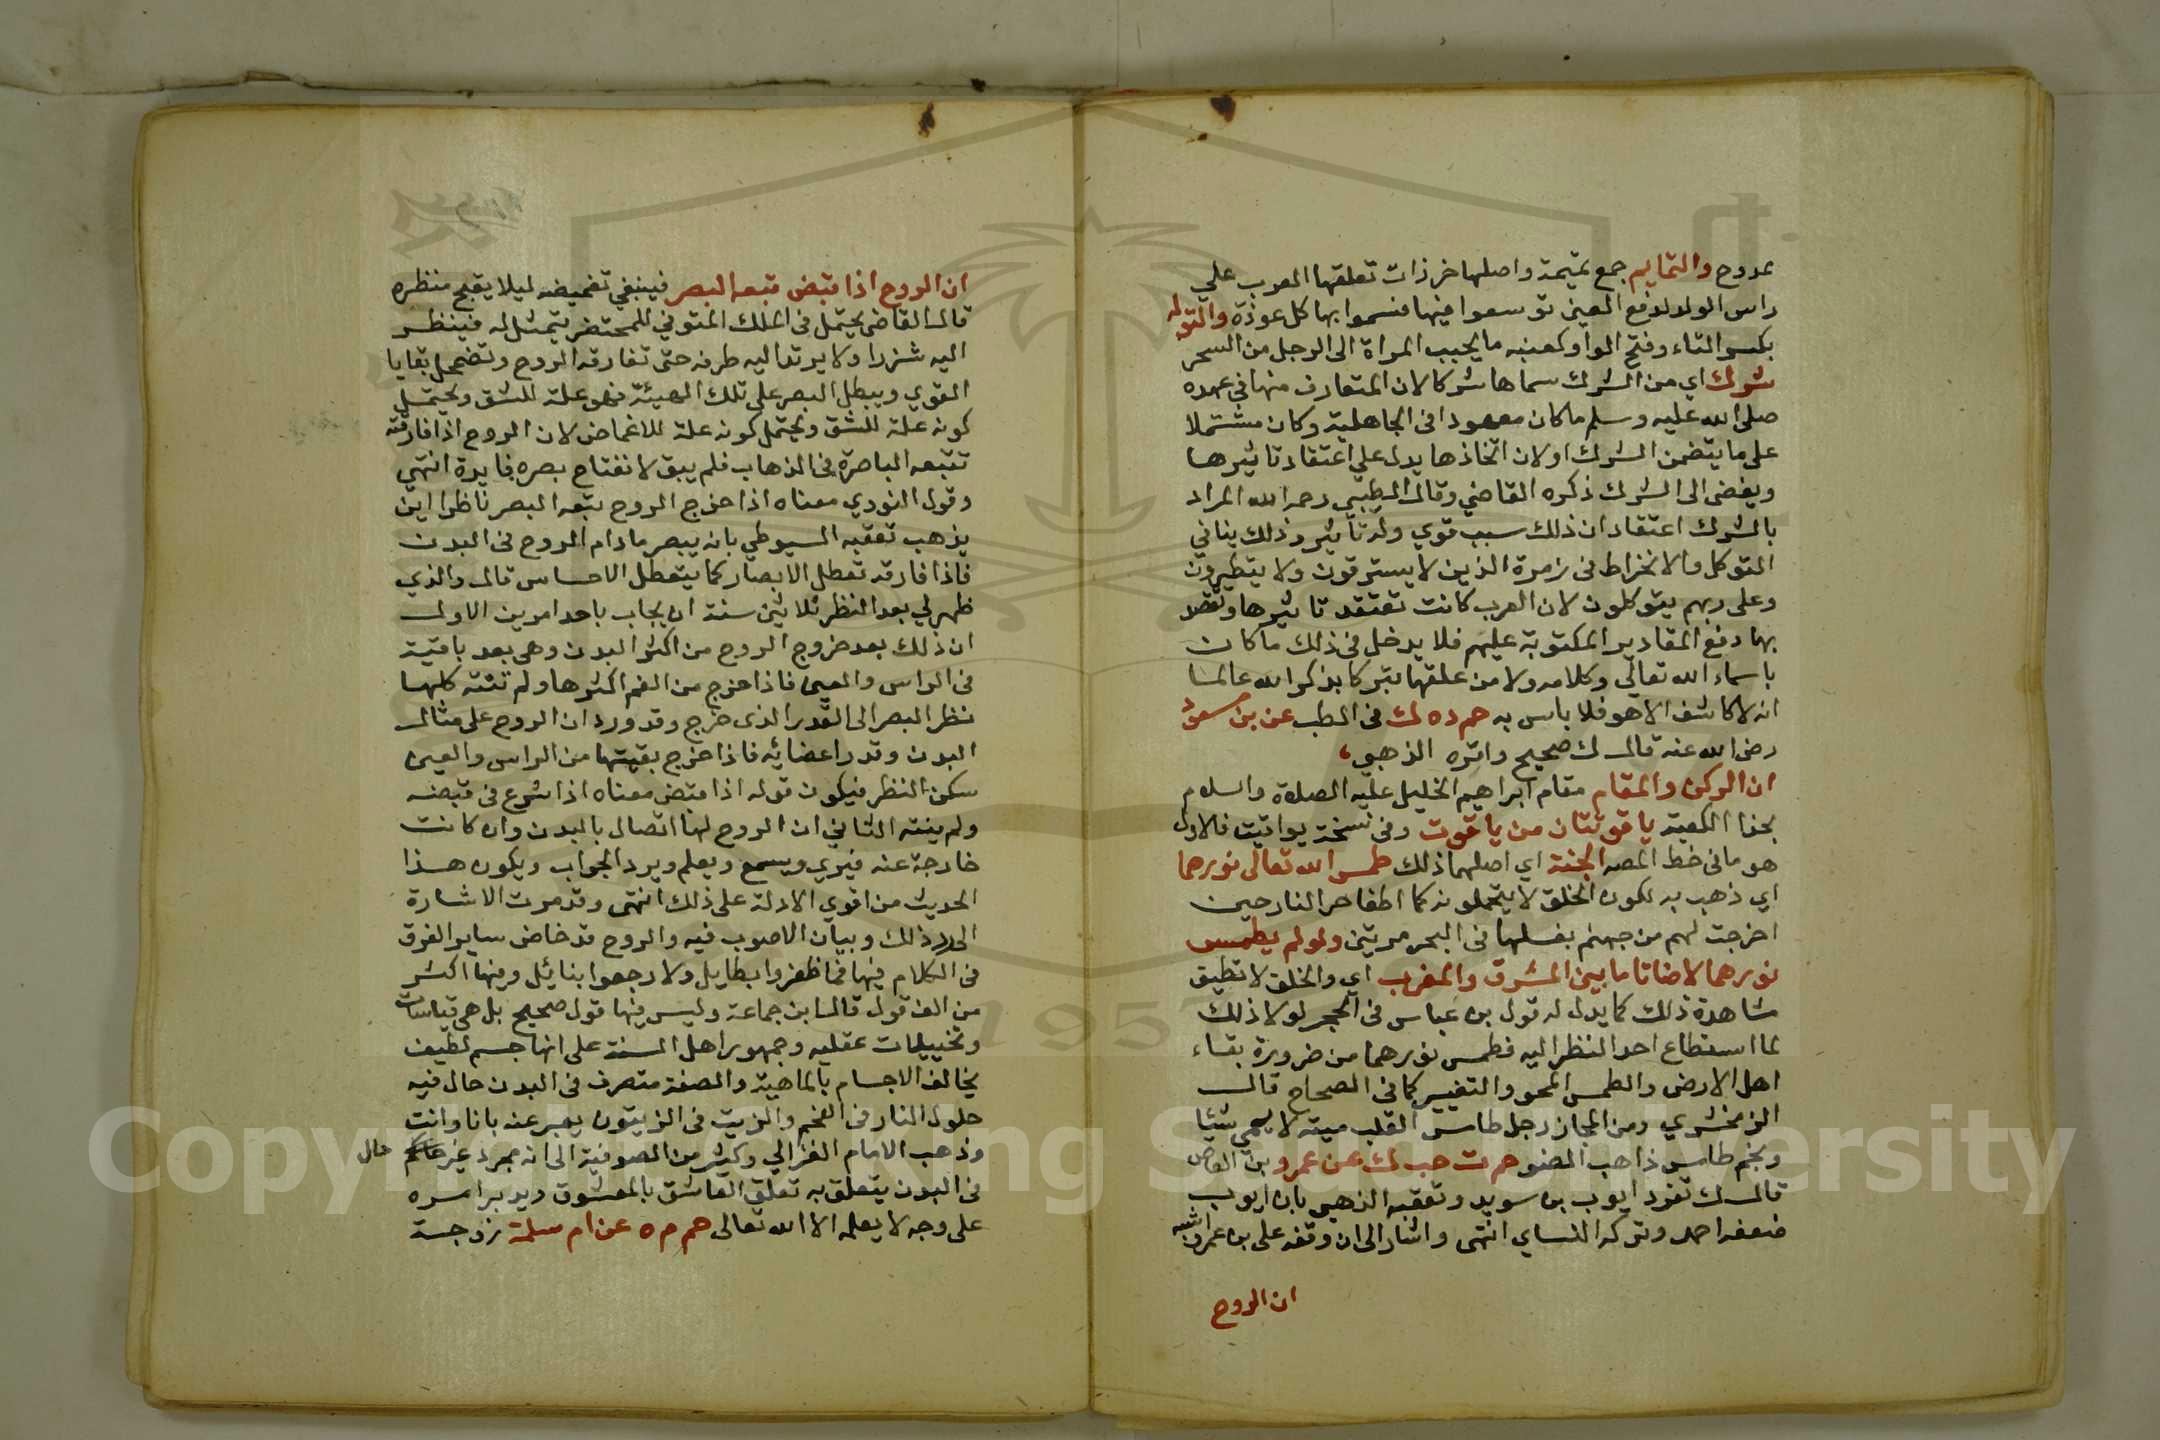 ممدوح والتمايم جمع تميمة واصلها خرزات تعلقها العرب علي
راس الولد لدفع العين توسعوا فيها فسموا بها كل عوذة والتوله
بكسر التاء وفتح الواو كعنبه ما يحبب المراة الى الرجل من السحر
شرك اي من الشرك سماها شركا لان المتعارف منها في عهده
صلى الله عليه وسلم ما كان معهودا في الجاهلية وكان مشتملا
على ما يتضمن الشرك او لان اتخاذها يدل علي اعتقاد تاثيرها
ويفضى الى الشرك ذكره القاضي وقال الطيبي رحمه الله المراد
بالشرك اعتقاد ان ذلك سبب قوي وله تأثير وذلك ينافي
التوكل والانخراط في زمرة الذين لا يسترقون ولا يتطيرون
وعلى ربهم يتوكلون لان العرب كانت تعتقد تاثيرها وتقصد
بها دفع المقادير المكتوبة عليهم فلا يدخل في ذلك ما كان
باسماء الله تعالى وكلامه ولا من علقها تبركا بذكر الله عالما
انه لا كاشف الا هو فلا باس به حم د ه ك في الطب عن بن مسعود
رضى الله عنه قال ك صحيح واقره الذهبي،
ان الركن والمقام مقام ابراهيم الخليل عليه الصلاة والسلام
بحذا الكعبة ياقوتتان من ياقوت وفي نسخة يواقيت فالاول
هو ما في خط المصه الجنة اي اصلهما ذلك طمس الله تعالى نورهما
اي ذهب به لكون الخلق لا يتحملونه كما اطفا حر النار حين
اخرجت لهم من جهنم بغسلها في البحر مرتين ولو لم يطمس
نورهما لاضاتا ما بين المشرق والمغرب اي والخلق لا تطيق
مشاهدة ذلك كما يدل له قول بن عباس في الحجر لولا ذلك
لما استطاع احد النظر اليه فطمس نورهما من ضرورة بقاء
اهل الارض والطمس المحو والتغيير كما في الصحاح قال
الزمخشري ومن المجاز رجل طامس القلب ميته لا يعي شيئا
ونجم طامس ذاهب الضو حم ت حب ك عن عمرو بن العاص
قال ك تفرد ايوب بن سويد وتعقبه الذهبي بان ايوب
ضعفه احمد وتركه النساي انتهى واشار الى ان وقفه على بن عمرو اشبه
ان الروح
ان الروح اذا قبض تبعه البصر فينبغي تغميضه ليلا يقبح منظره
قال القاضى يحتمل في الملك المتوفي للمحتضر يتمثل له فينظر
اليه شزرا ولا يرتد اليه طرفه حتى تفارقه الروح وتضمحل بقايا
القوي ويبطل البصر على تلك الهيئة فهو علة للشق ويحتمل
كونه علة للشق ويحتمل كونه علة للاغماض لان الروح اذا فارقته
تتبعه الباصرة في الذهاب فلم يبق لانفتاح بصره فايدة انتهي
وقول النووي معناه اذا خرج الروح تبعه البصر ناظرا اين
يذهب تعقبه السيوطي بانه يبصر مادام الروح في البدن
فاذا فارقه تعطل الابصار كما يتعطل الاحساس قال والذي
ظهر لي بعد النظر ثلاثين سنة ان يجاب باحد امرين الاول
ان ذلك بعد خروج الروح من اكثر البدن وهي بعد باقية
في الراس والعين فاذا خرج من الفم اكثرها ولم تنته كلها
نظر البصر الى القدر الذى خرج وقد ورد ان الروح على مثال
البدن وقدر اعضائه فاذا خرج بقيتها من الراس والعين
سكن النظر فيكون قوله اذا قبض معناه اذا شرع في قبضه
ولم ينته الثاني ان الروح لها اتصال بالبدن وان كانت
خارجة عنه فيري ويسمع ويعلم ويرد الجواب ويكون هذا
الحديث من اقوي الادلة على ذلك انتهى وقد مرت الاشارة
الى رد ذلك وبيان الاصوب فيه والروح قد خاض ساير الفرق
في الكلام فيها فما ظفروا بطايل ولا رجعوا بنائل وفيها اكثر
من الف قول قال ابن جماعة وليس فيها قول صحيح بل هي قياسات
وتخييلات عقليه وجمهور اهل السنة على انها جسم لطيف
يخالف الاجسام بالماهية والصفة متصرف في البدن حال فيه
حلول النار في الفحم والزيت في الزيتون يعبر عنه بانا وانت
وذهب الامام الغزالي وكثير من الصوفية الى انه مجرد غير حال
في البدن يتعلق به تعلق العاشق بالمعشوق ويدبر امره
على وجه لا يعلمه الا الله تعالى حم م ه عن ام سلمة زوجة
Copyright © King Saud University
1957